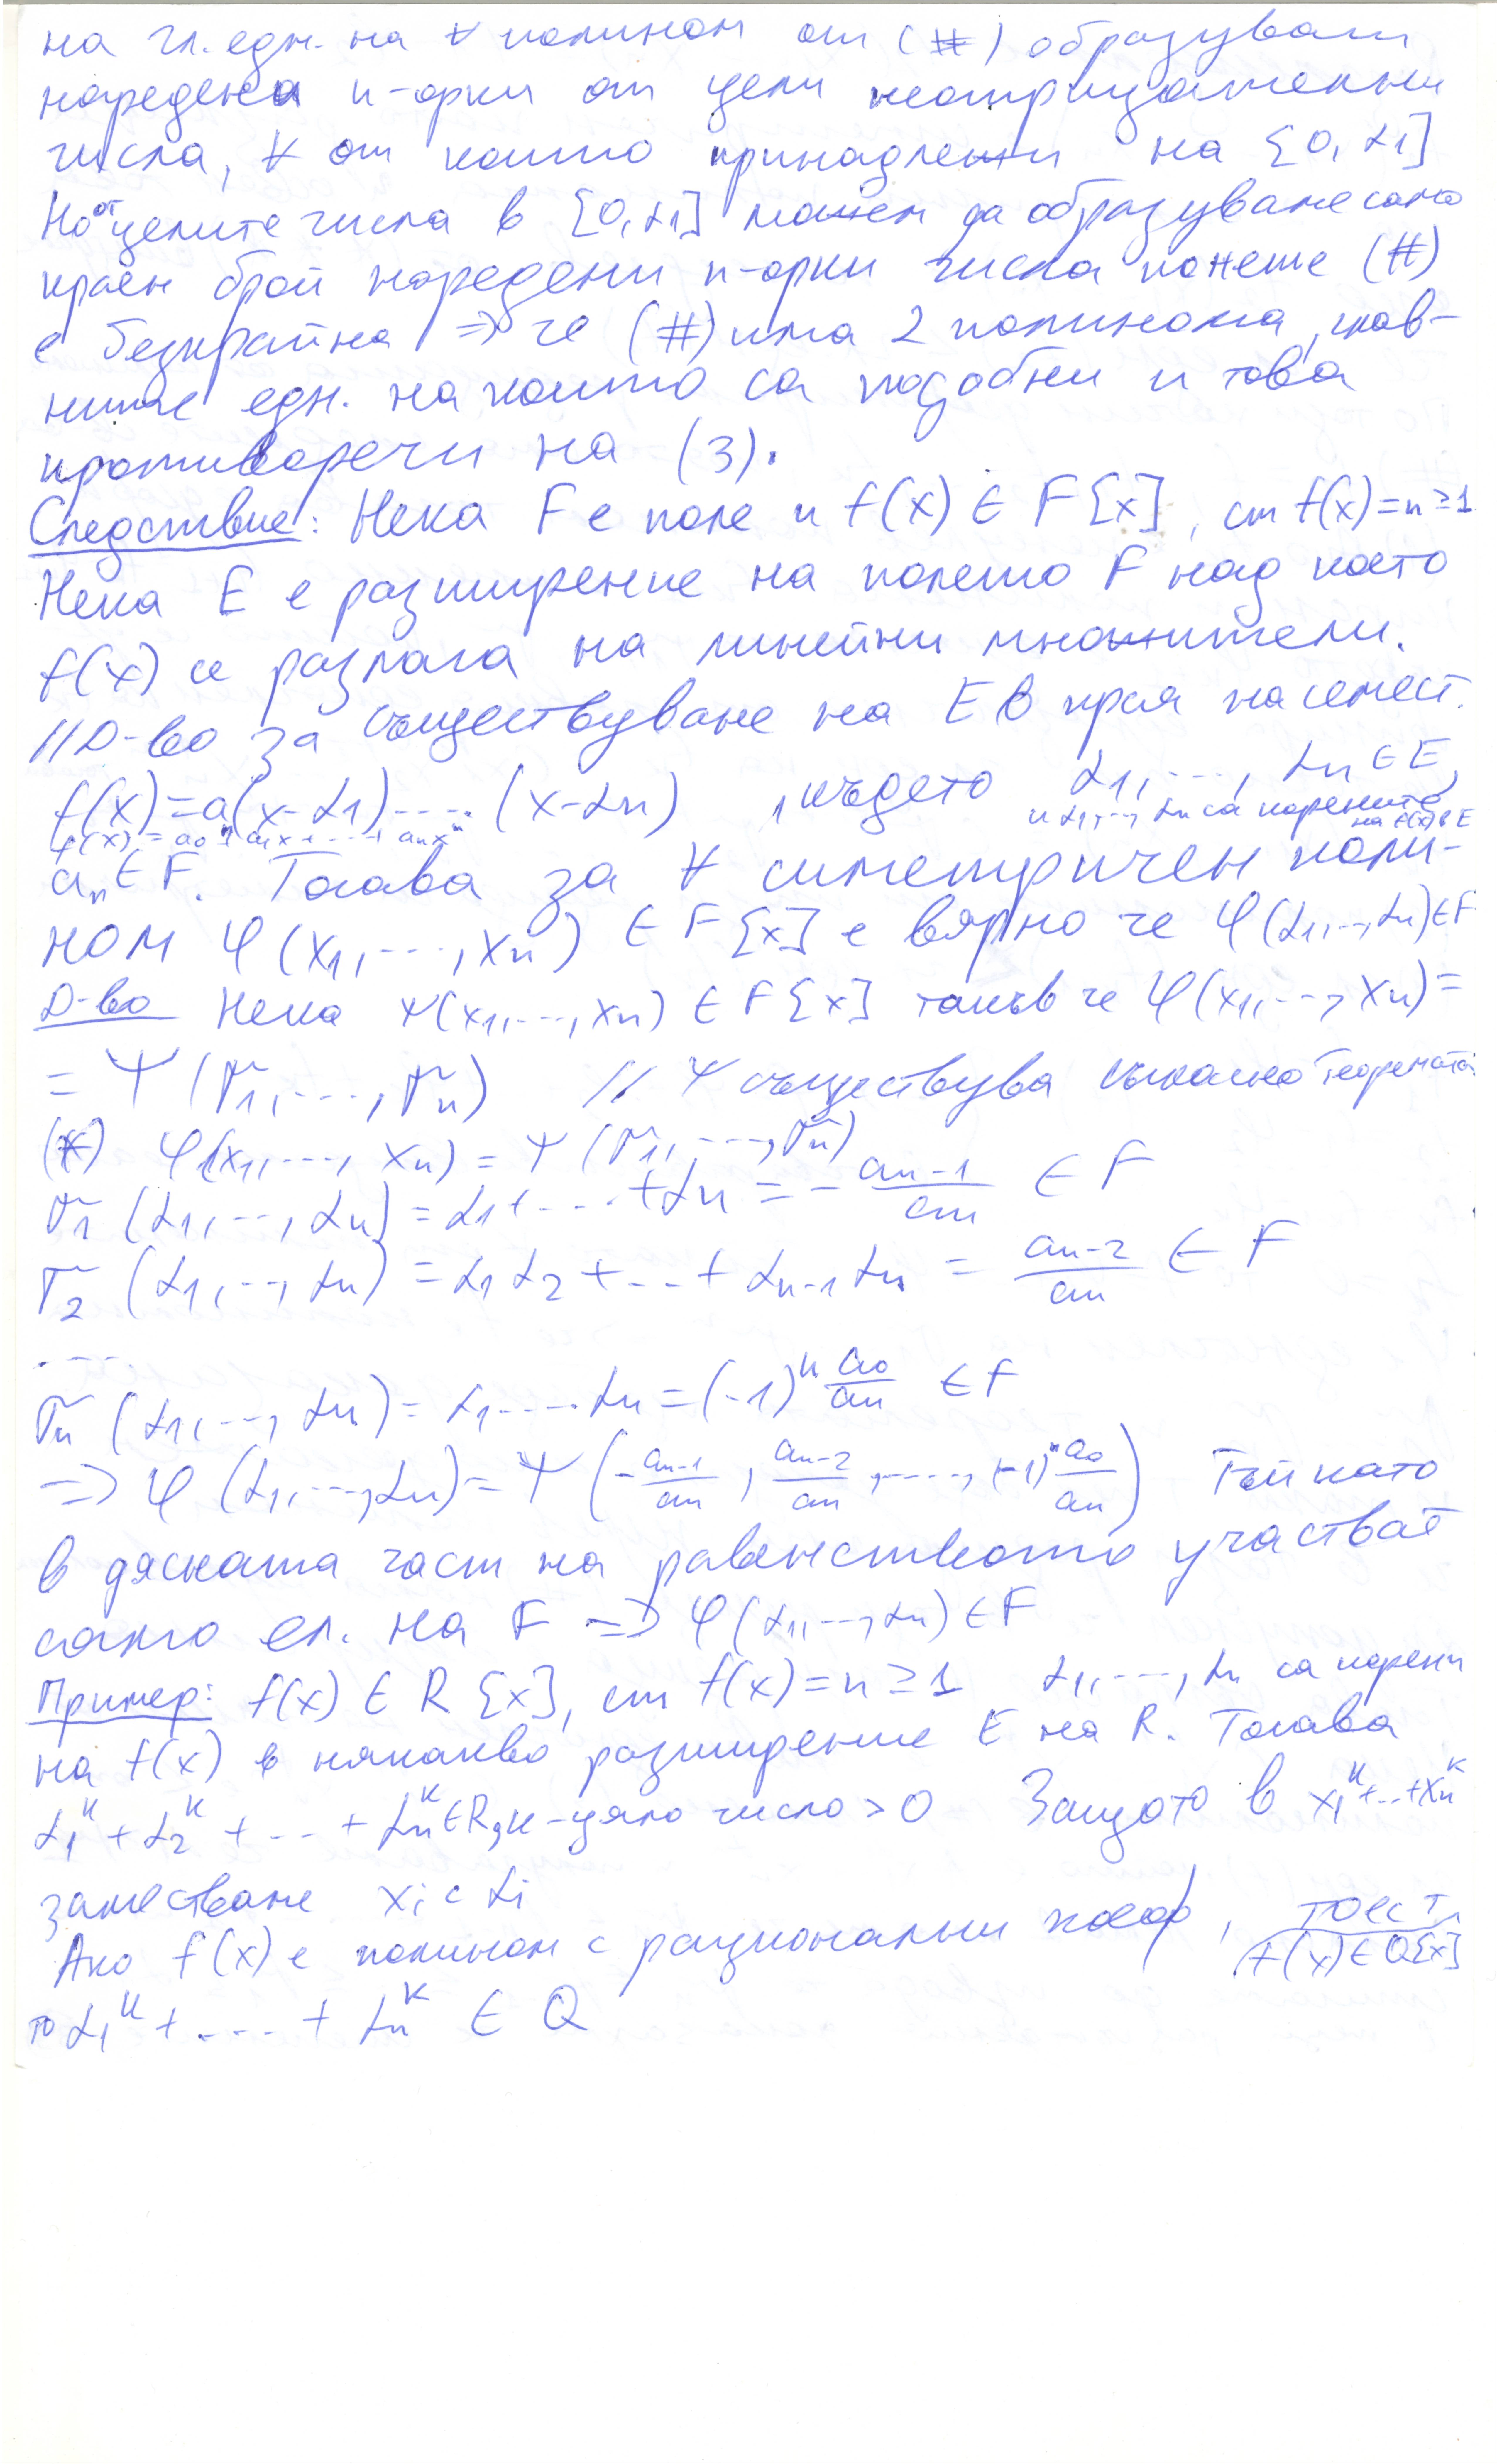 на гл. едн. на ∀ полином от (#) образуват
наредена n-орки от цели неотрицателни
числа, ∀ от които принадлежи на [0, α1]
Но от целите числа в [0, α1] можем да образуваме само
краен брой наредени n-орки числа понеже (#)
е безкрайна => че (#) има 2 полинома, глав-
ните едн. на които са подобни и това
противоречи на (3).
Следствие: Нека F е поле и f(x) ∈ F[x], ст f(x) = n ≥ 1
Нека E е разширение на полето F над което
f(x) се разлага на линейни множители.
// Д-во за съществуване на E в края на семест.
f(x) = a(x-α1) .... (x-αn) , където α1, ..., αn ∈ E,
и α1, .., αn са корените на f(x) в E
f(x) = a0 + a1x + .... + anxⁿ
an ∈ F. Тогава за ∀ симетричен поли-
ном φ(x1, ..., xn) ∈ F[x] е вярно че φ(α1, .., αn) ∈ F
Д-во Нека ψ(x1, ..., xn) ∈ F[x] такъв че φ(x1, .., xn) =
= ψ(σ1, ..., σn) // ψ съществува съгласно теоремата
(*) φ(x1, ..., xn) = ψ(σ1, ..., σn)
σ1(α1, .., αn) = α1 + ... + αn = - an-1/an ∈ F
σ2(α1, .., αn) = α1α2 + ... + αn-1αn = an-2/an ∈ F
....
σn(α1, .., αn) = α1 .... αn = (-1)ⁿ a0/an ∈ F
=> φ(α1, .., αn) = ψ(- an-1/an , an-2/an , ...., (-1)ⁿ a0/an) Тъй като
в дясната част на равенството участват
само ел. на F => φ(α1, .., αn) ∈ F
Пример: f(x) ∈ R[x], ст f(x) = n ≥ 1 α1, ..., αn са корени
на f(x) в някакво разширение E на R. Тогава
α1ᵏ + α2ᵏ + ... + αnᵏ ∈ R, k - цяло число > 0 Защото в x1ᵏ + .. + xnᵏ
заместваме xi с αi
Ако f(x) е полином с рационални коеф, тоест f(x) ∈ Q[x]
то α1ᵏ + .... + αnᵏ ∈ Q